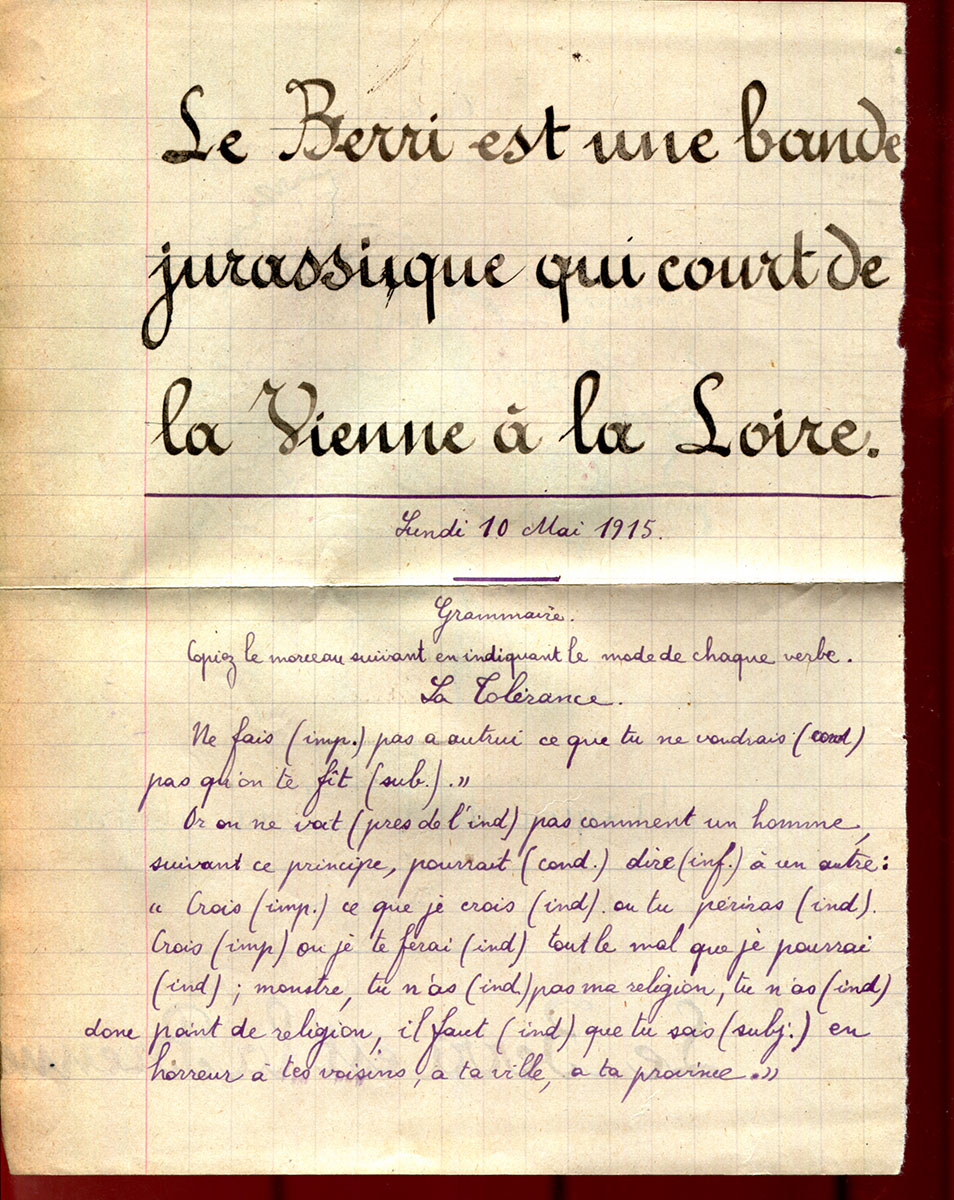 Le Berri est une bande
jurassique qui court de
la Vienne à la Loire.
Lundi 10 Mai 1915.
Grammaire.
Copiez le morceau suivant en indiquant le mode de chaque verbe.
La Tolérance.
Ne fais (imp.) pas a autrui ce que tu ne voudrais (cond)
pas qu'on te fît (sub.).»
Or on ne voit (pres de l'ind) pas comment un homme,
suivant ce principe, pourrait (cond.) dire (inf.) à un autre :
« Crois (imp.) ce que je crois (ind). ou tu périras (ind).
Crois (imp) ou je te ferai (ind) tout le mal que je pourrai
(ind) ; monstre, tu n'as (ind.) pas ma religion, tu n'as (ind)
donc point de religion, il faut (ind) que tu sois (subj.) en
horreur a tes voisins, a ta ville, a ta province.»